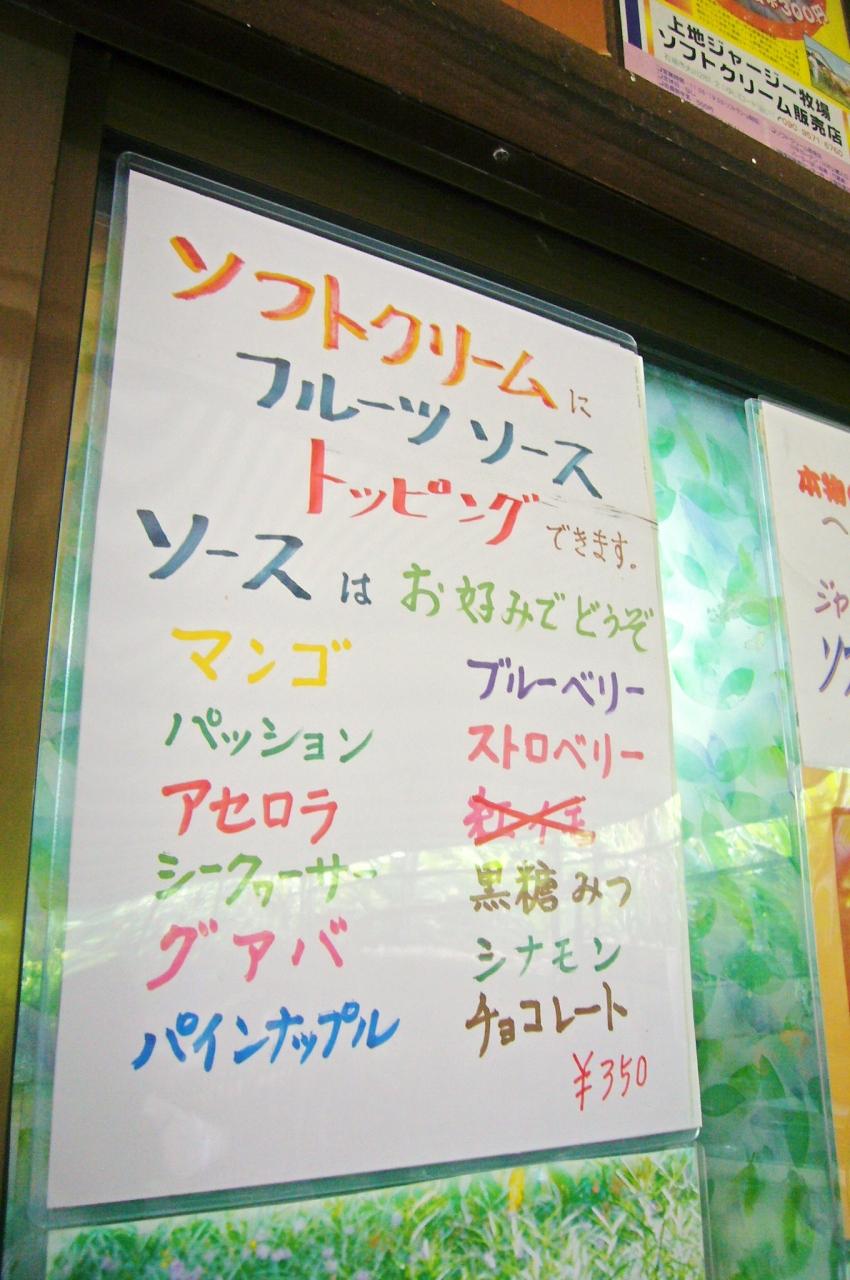 300円
上地ジャージー牧場
ソフトクリーム販売店
ソフトクリームに
フルーツ ソース
トッピングできます。
ソースは お好みでどうぞ
マンゴ
パッション
アセロラ
シークヮーサー
グアバ
パインナップル
ブルーベリー
ストロベリー
紅イモ
黒糖みつ
シナモン
チョコレート
¥350
本物
ジャ
ソフ